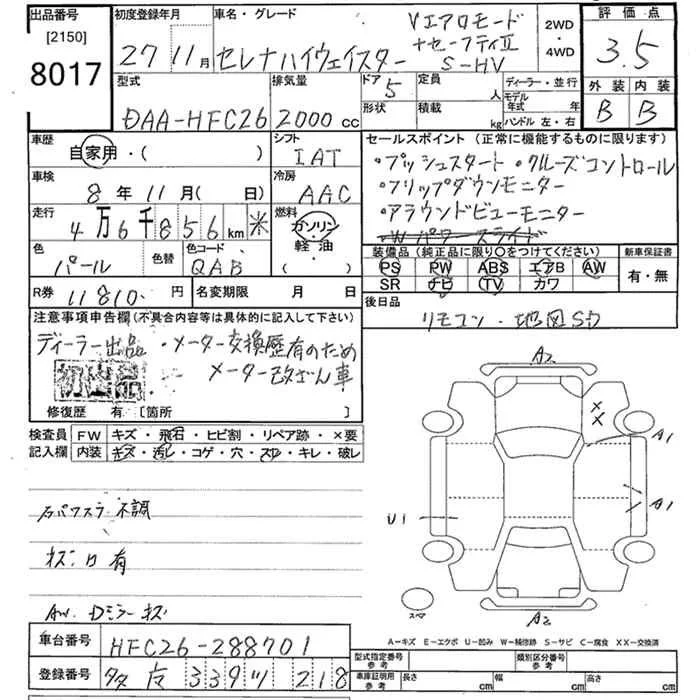 出品番号 初度登録年月 車名・グレード Vエアロモード 2WD 評価点
[2150] 27年11月 セレナハイウェイスター +セーフティII ・ 3.5
8017 S-HV 4WD
型式 排気量 ドア 5 定員 人 ディーラー・並行 外装 内装
DAA-HFC26 2000cc 形状 積載 kg モデル年式 年 B B
ハンドル 左・右
車歴 自家用・( ) シフト IAT セールスポイント (正常に機能するものに限ります)
車検 8年11月( 日) 冷房 AAC ・プッシュスタート ・クルーズコントロール
・フリップダウンモニター
走行 4万6千856km 米 燃料 ガソリン ・アラウンドビューモニター
軽油 ( ) ・Wパワースライド
色 パール 色替 色コード QAB 装備品 (純正品に限り○をつけてください) 新車保証書
PS PW ABS エアB AW 有・無
R券 11810円 名変期限 月 日 SR ナビ TV カワ
後日品
リモコン・地図SD
注意事項申告欄 (不具合内容等は具体的に記入して下さい)
ディーラー出品 ・メーター交換歴有のため
初出品 メーター改ざん車
修復歴 有 [箇所 ]
検査員 FW キズ・飛石・ヒビ割・リペア跡・×要
記入欄 内装 キズ・汚レ・コゲ・穴・スレ・キレ・破レ
A2
××
A1
A1
U1
スペア
A2
右パワスラ不調
キズ凹有
AW. Dミラーキズ
A=キズ E=エクボ U=凹み W=補修跡 S=サビ C=腐食 XX=交換済
車台番号 HFC26-288701
型式指定番号 参考 類別区分番号 参考
登録番号 339 218
車庫証明用 参考 長さ cm 幅 cm 高さ cm